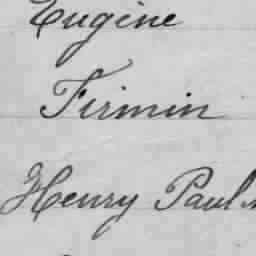 Eugène
Firmin
Henry Paul